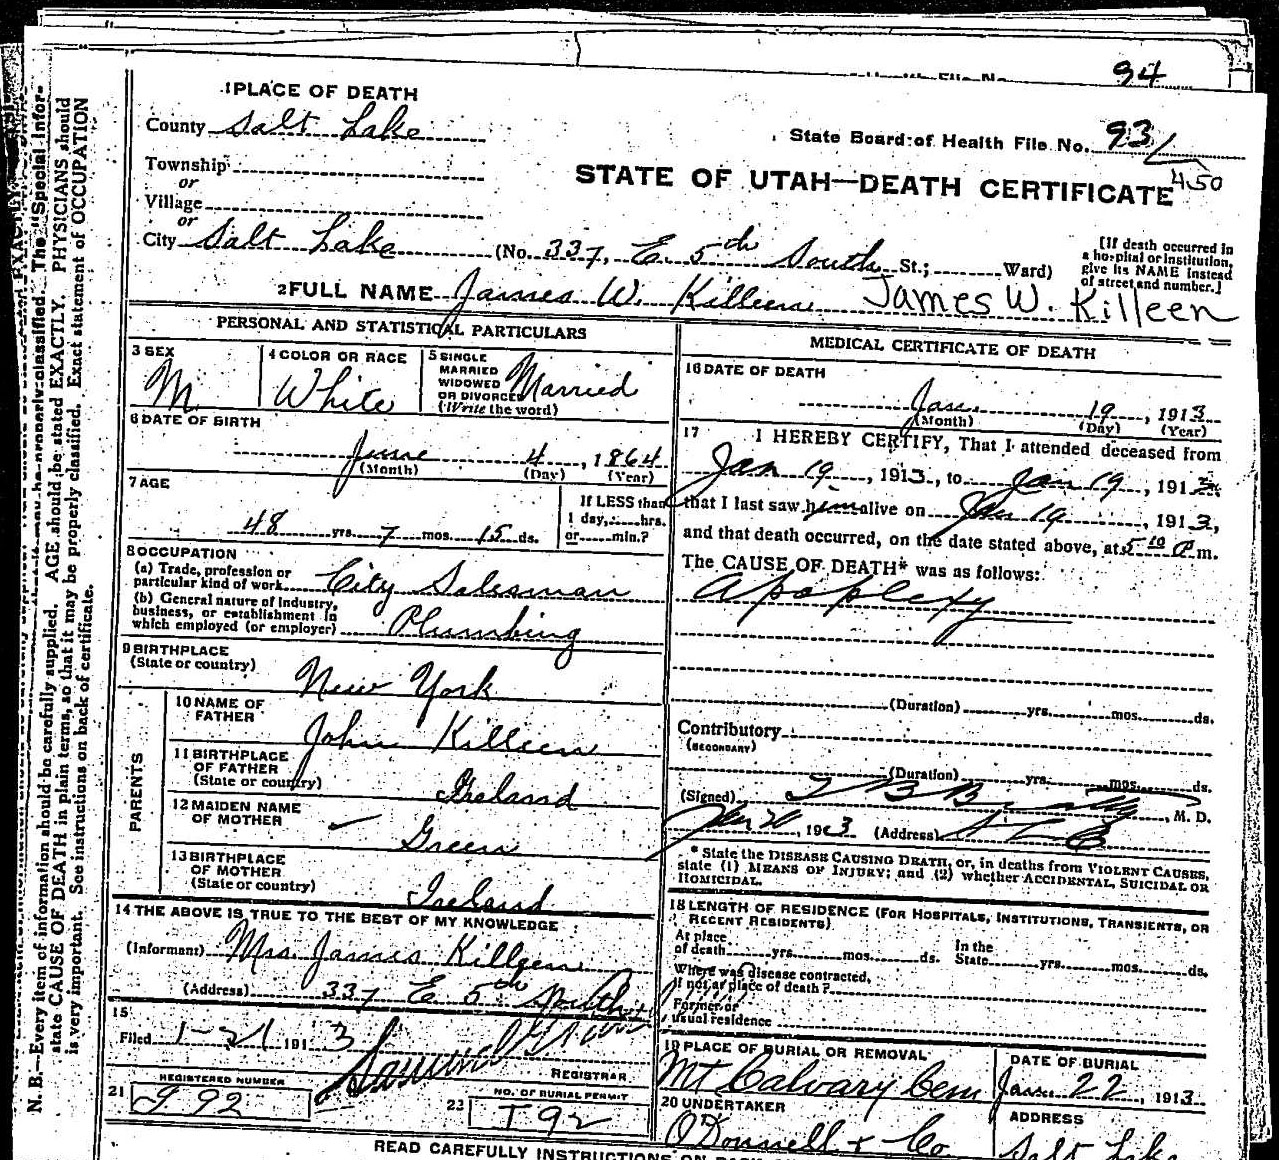 94
1 PLACE OF DEATH
County Salt Lake
State Board of Health File No. 93
450
Township
or
Village
or
City Salt Lake (No. 337, E. 5th South St.; Ward)
STATE OF UTAH—DEATH CERTIFICATE
[If death occurred in
a hospital or institution,
give its NAME instead
of street and number.]
2 FULL NAME James W. Killeen James W. Killeen
PERSONAL AND STATISTICAL PARTICULARS
3 SEX
M
4 COLOR OR RACE
White
5 SINGLE
MARRIED
WIDOWED
OR DIVORCED
(Write the word)
Married
6 DATE OF BIRTH
June 4, 1864
(Month) (Day) (Year)
7 AGE
48 yrs. 7 mos. 15 ds.
If LESS than
1 day, hrs.
or min.?
8 OCCUPATION
(a) Trade, profession or
particular kind of work City Salesman
(b) General nature of Industry,
business, or establishment in
which employed (or employer) Plumbing
9 BIRTHPLACE
(State or country) New York
PARENTS
10 NAME OF
FATHER John Killeen
11 BIRTHPLACE
OF FATHER
(State or country) Ireland
12 MAIDEN NAME
OF MOTHER Green
13 BIRTHPLACE
OF MOTHER
(State or country) Ireland
14 THE ABOVE IS TRUE TO THE BEST OF MY KNOWLEDGE
(Informant) Mrs James Killeen
(Address) 337 E 5th South
15
Filed 1-21 1913
REGISTRAR
21 REGISTERED NUMBER
992
22 NO. OF BURIAL PERMIT
T92
MEDICAL CERTIFICATE OF DEATH
16 DATE OF DEATH
Jan. 19, 1913
(Month) (Day) (Year)
17 I HEREBY CERTIFY, That I attended deceased from
Jan 19, 1913, to Jan 19, 1913,
that I last saw him alive on Jan 19, 1913,
and that death occurred, on the date stated above, at 5 10 P.m.
The CAUSE OF DEATH* was as follows:
Apoplexy
(Duration) yrs. mos. ds.
Contributory
(SECONDARY)
(Duration) yrs. mos. ds.
(Signed) , M. D.
Jan 20, 1913 (Address) S L C
* State the DISEASE CAUSING DEATH, or, in deaths from VIOLENT CAUSES,
state (1) MEANS OF INJURY; and (2) whether ACCIDENTAL, SUICIDAL OR
HOMICIDAL.
18 LENGTH OF RESIDENCE (FOR HOSPITALS, INSTITUTIONS, TRANSIENTS, OR
RECENT RESIDENTS)
At place
of death yrs. mos. ds. In the
State yrs. mos. ds.
Where was disease contracted,
if not at place of death?
Former or
usual residence
19 PLACE OF BURIAL OR REMOVAL
Mt Calvary Cem
DATE OF BURIAL
Jan. 22, 1913
20 UNDERTAKER
O'Donnell & Co
ADDRESS
Salt Lake
READ CAREFULLY INSTRUCTIONS ON
N. B.—Every item of information should be carefully supplied. AGE should be stated EXACTLY. PHYSICIANS should
state CAUSE OF DEATH in plain terms, so that it may be properly classified. Exact statement of OCCUPATION
is very important. See instructions on back of certificate.